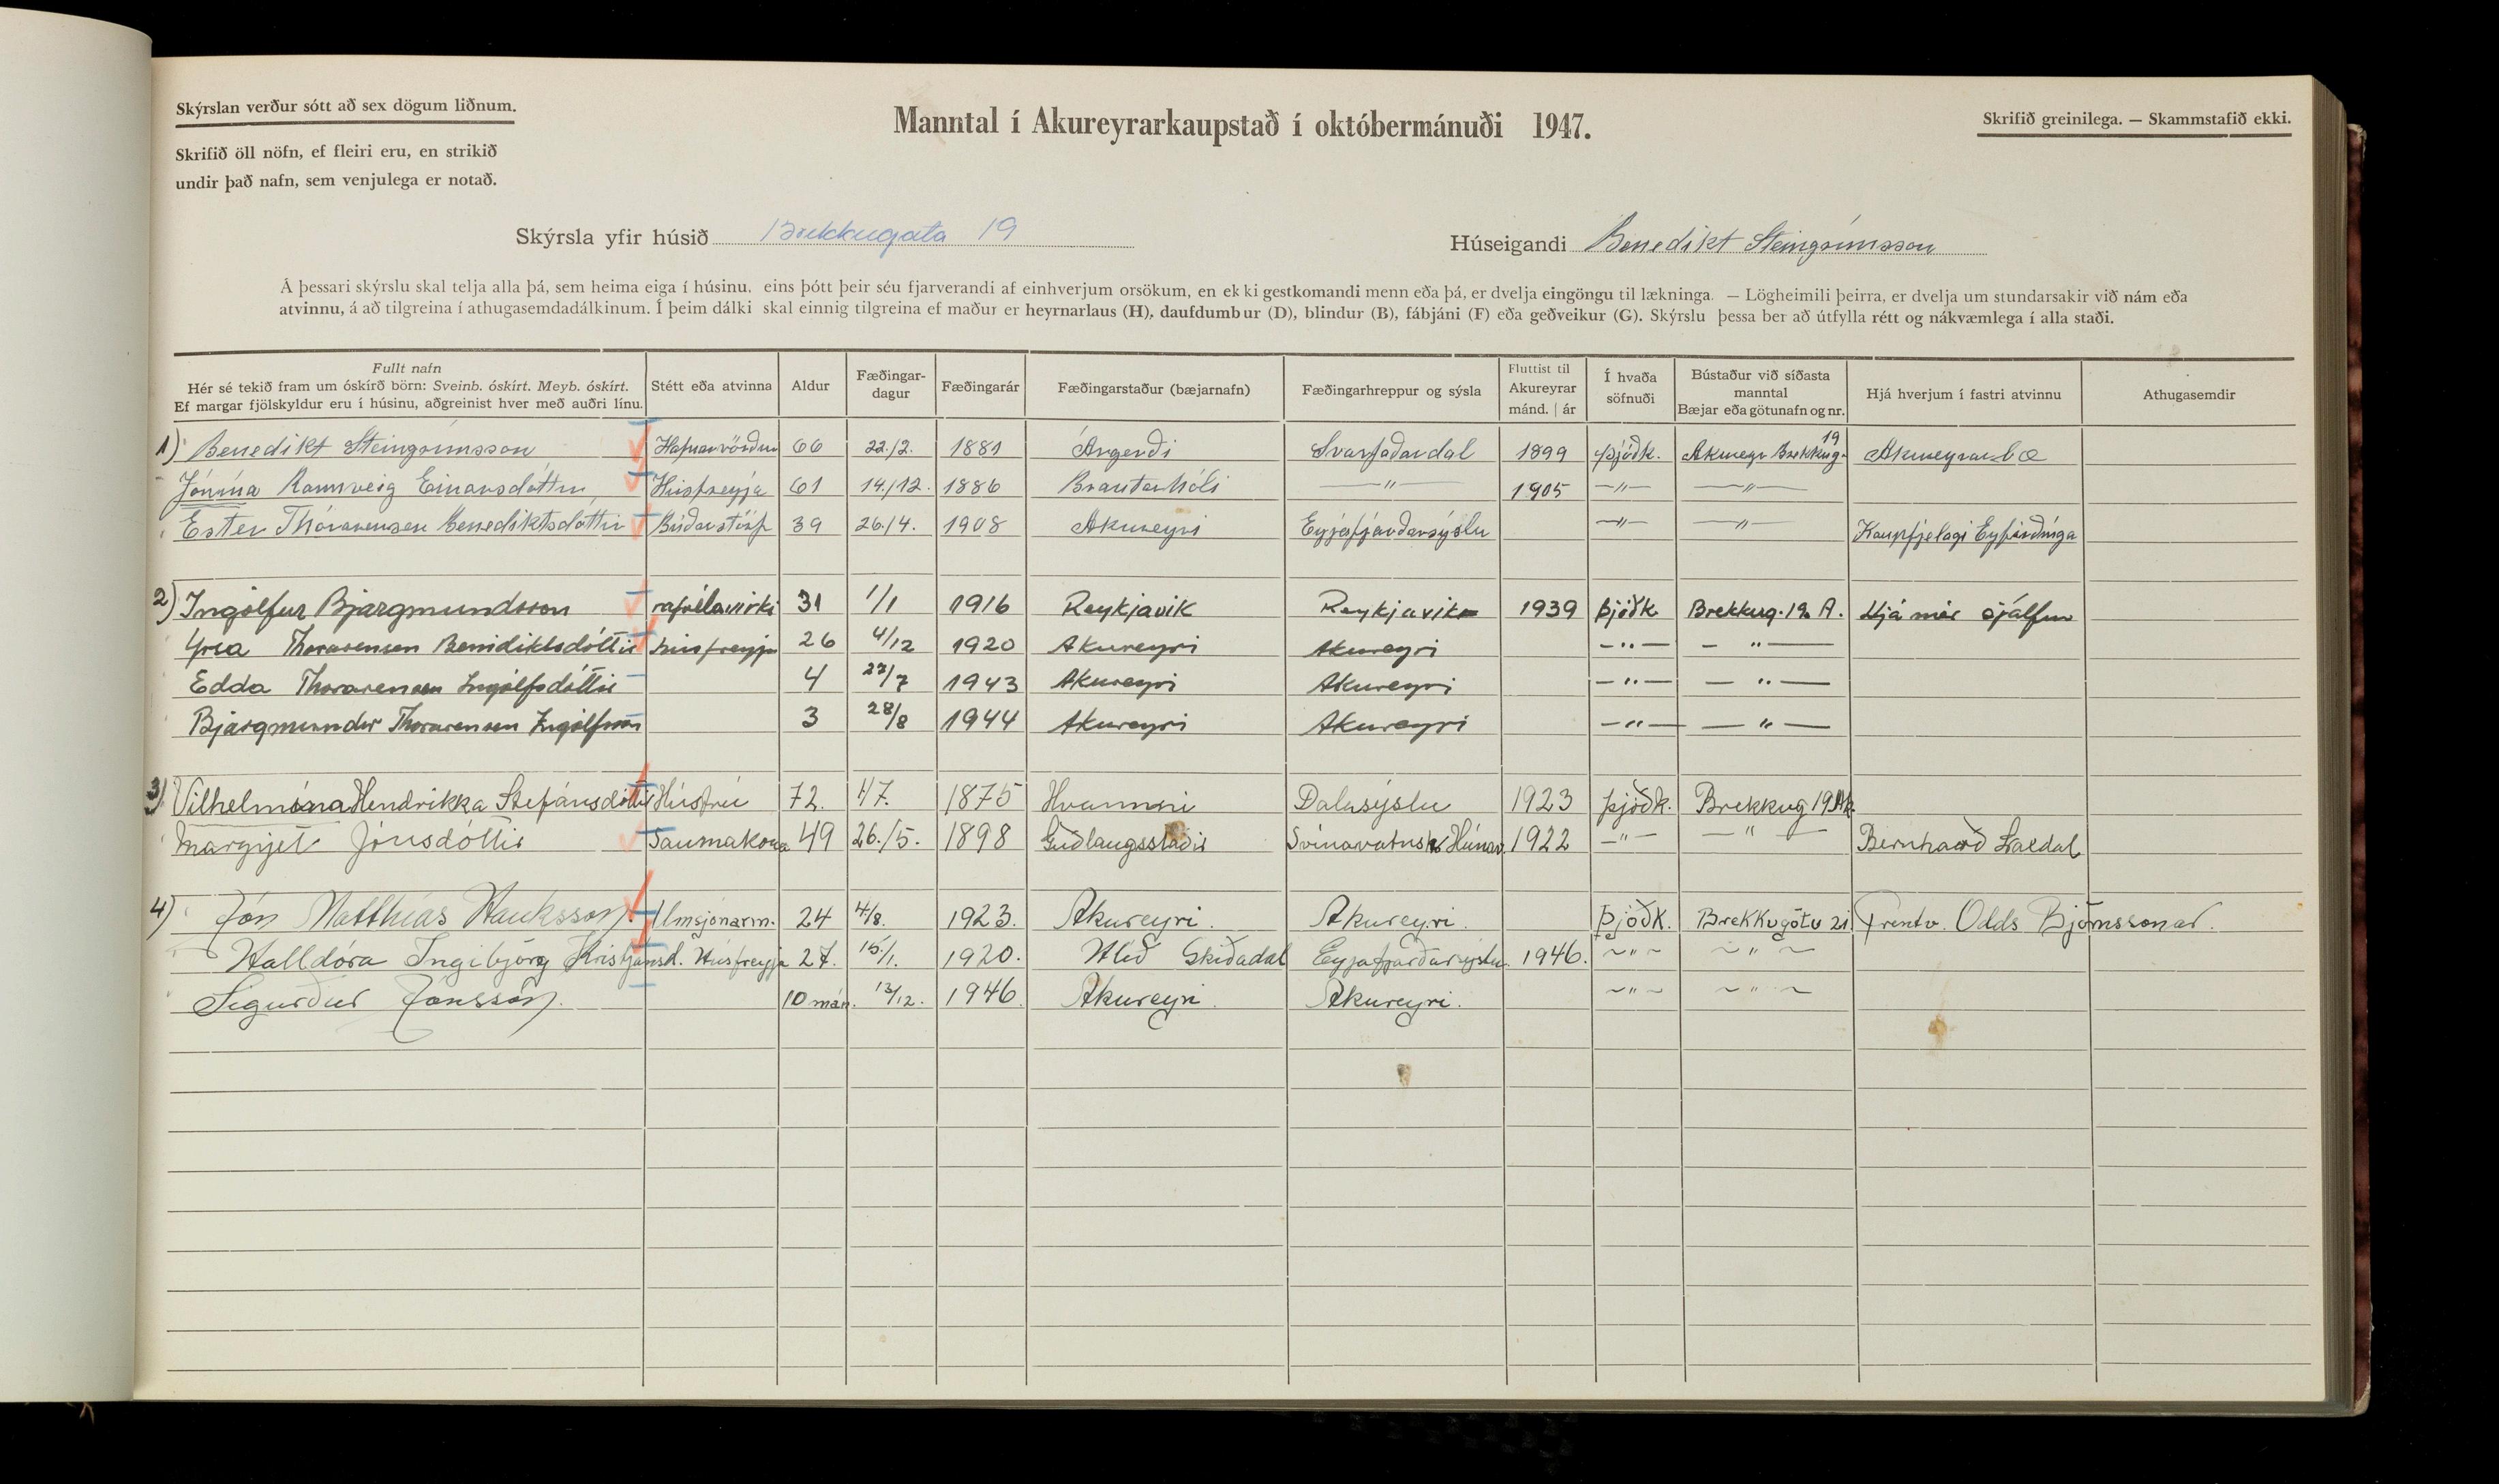 Skýrslan verður sótt að sex dögum liðnum.
Manntal í Akureyrarkaupstað í októbermánuði 1947.
Skrifið greinilega. — Skammstafið ekki.
Skrifið öll nöfn, ef fleiri eru, en strikið
undir það nafn, sem venjulega er notað.
Skýrsla yfir húsið Brekkugata 19
Húseigandi Benedikt Steingrímsson
Á þessari skýrslu skal telja alla þá, sem heima eiga í húsinu, eins þótt þeir séu fjarverandi af einhverjum orsökum, en ekki gestkomandi menn eða þá, er dvelja eingöngu til lækninga. — Lögheimili þeirra, er dvelja um stundarsakir við nám eða
atvinnu, á að tilgreina í athugasemdadálkinum. Í þeim dálki skal einnig tilgreina ef maður er heyrnarlaus (H), daufdumbur (D), blindur (B), fábjáni (F) eða geðveikur (G). Skýrslu þessa ber að útfylla rétt og nákvæmlega í alla staði.
Fullt nafn
Hér sé tekið fram um óskírð börn: Sveinb. óskírt. Meyb. óskírt.
Ef margar fjölskyldur eru í húsinu, aðgreinist hver með auðri línu.
Stétt eða atvinna
Aldur
Fæðingar-
dagur
Fæðingarár
Fæðingarstaður (bæjarnafn)
Fæðingarhreppur og sýsla
Fluttist til
Akureyrar
mánd. | ár
Í hvaða
söfnuði
Bústaður við síðasta
manntal
Bæjar eða götunafn og nr.
Hjá hverjum í fastri atvinnu
Athugasemdir
1) Benedikt Steingrímsson Hafnarvörður 66 22./2. 1881 Árgerði Svarfaðardal 1899 þjóðk. Akureyri Brekkug. 19 Akureyrarbæ
Jónína Rannveig Einarsdóttir Húsfreyja 61 14./12. 1886 Brautarhóli —"— 1905 —"— —"—
Ester Thórarensen Benediktsdóttir Búðarstörf 39 26./4. 1908 Akureyri Eyjafjarðarsýslu —"— —"— Kaupfjelagi Eyfirðinga
2) Ingólfur Bjargmundsson rafvélavirki 31 1/1 1916 Reykjavik Reykjavik 1939 þjóðk Brekkug. 19 A. Hjá mér sjálfum
Yrsa Thorarensen Benidiktsdóttir húsfreyja 26 4/12 1920 Akureyri Akureyri —"— —"—
Edda Thorarensen Ingólfsdóttir 4 27/7 1943 Akureyri Akureyri —"— —"—
Bjargmundur Thorarensen Ingólfsson 3 28/8 1944 Akureyri Akureyri —"— —"—
3) Vilhelmína Hendrikka Stefánsdóttir Húsfrú 72. 1/7. 1875 Hvammi Dalasýslu 1923 þjóðk. Brekkug 19 Ak.
Margrjet Jónsdóttir Saumakona 49 26./5. 1898 Guðlaugsstaðir Svínavatnsh. Húnav. 1922 —"— —"— Bernharð Laxdal
4) Jón Matthías Hauksson. Umsjónarm. 24 4/8. 1923. Akureyri. Akureyri. Þjóðk. Brekkugötu 21 Prentv. Odds Björnssonar.
Halldóra Ingibjörg Kristjánsd. Húsfreyja 27. 15/1. 1920. Hlíð Skíðadal Eyjafjarðarsýslu. 1946. ~"~ ~"~
Sigurður Jónsson. 10 mán. 13/12. 1946. Akureyri. Akureyri. ~"~ ~"~